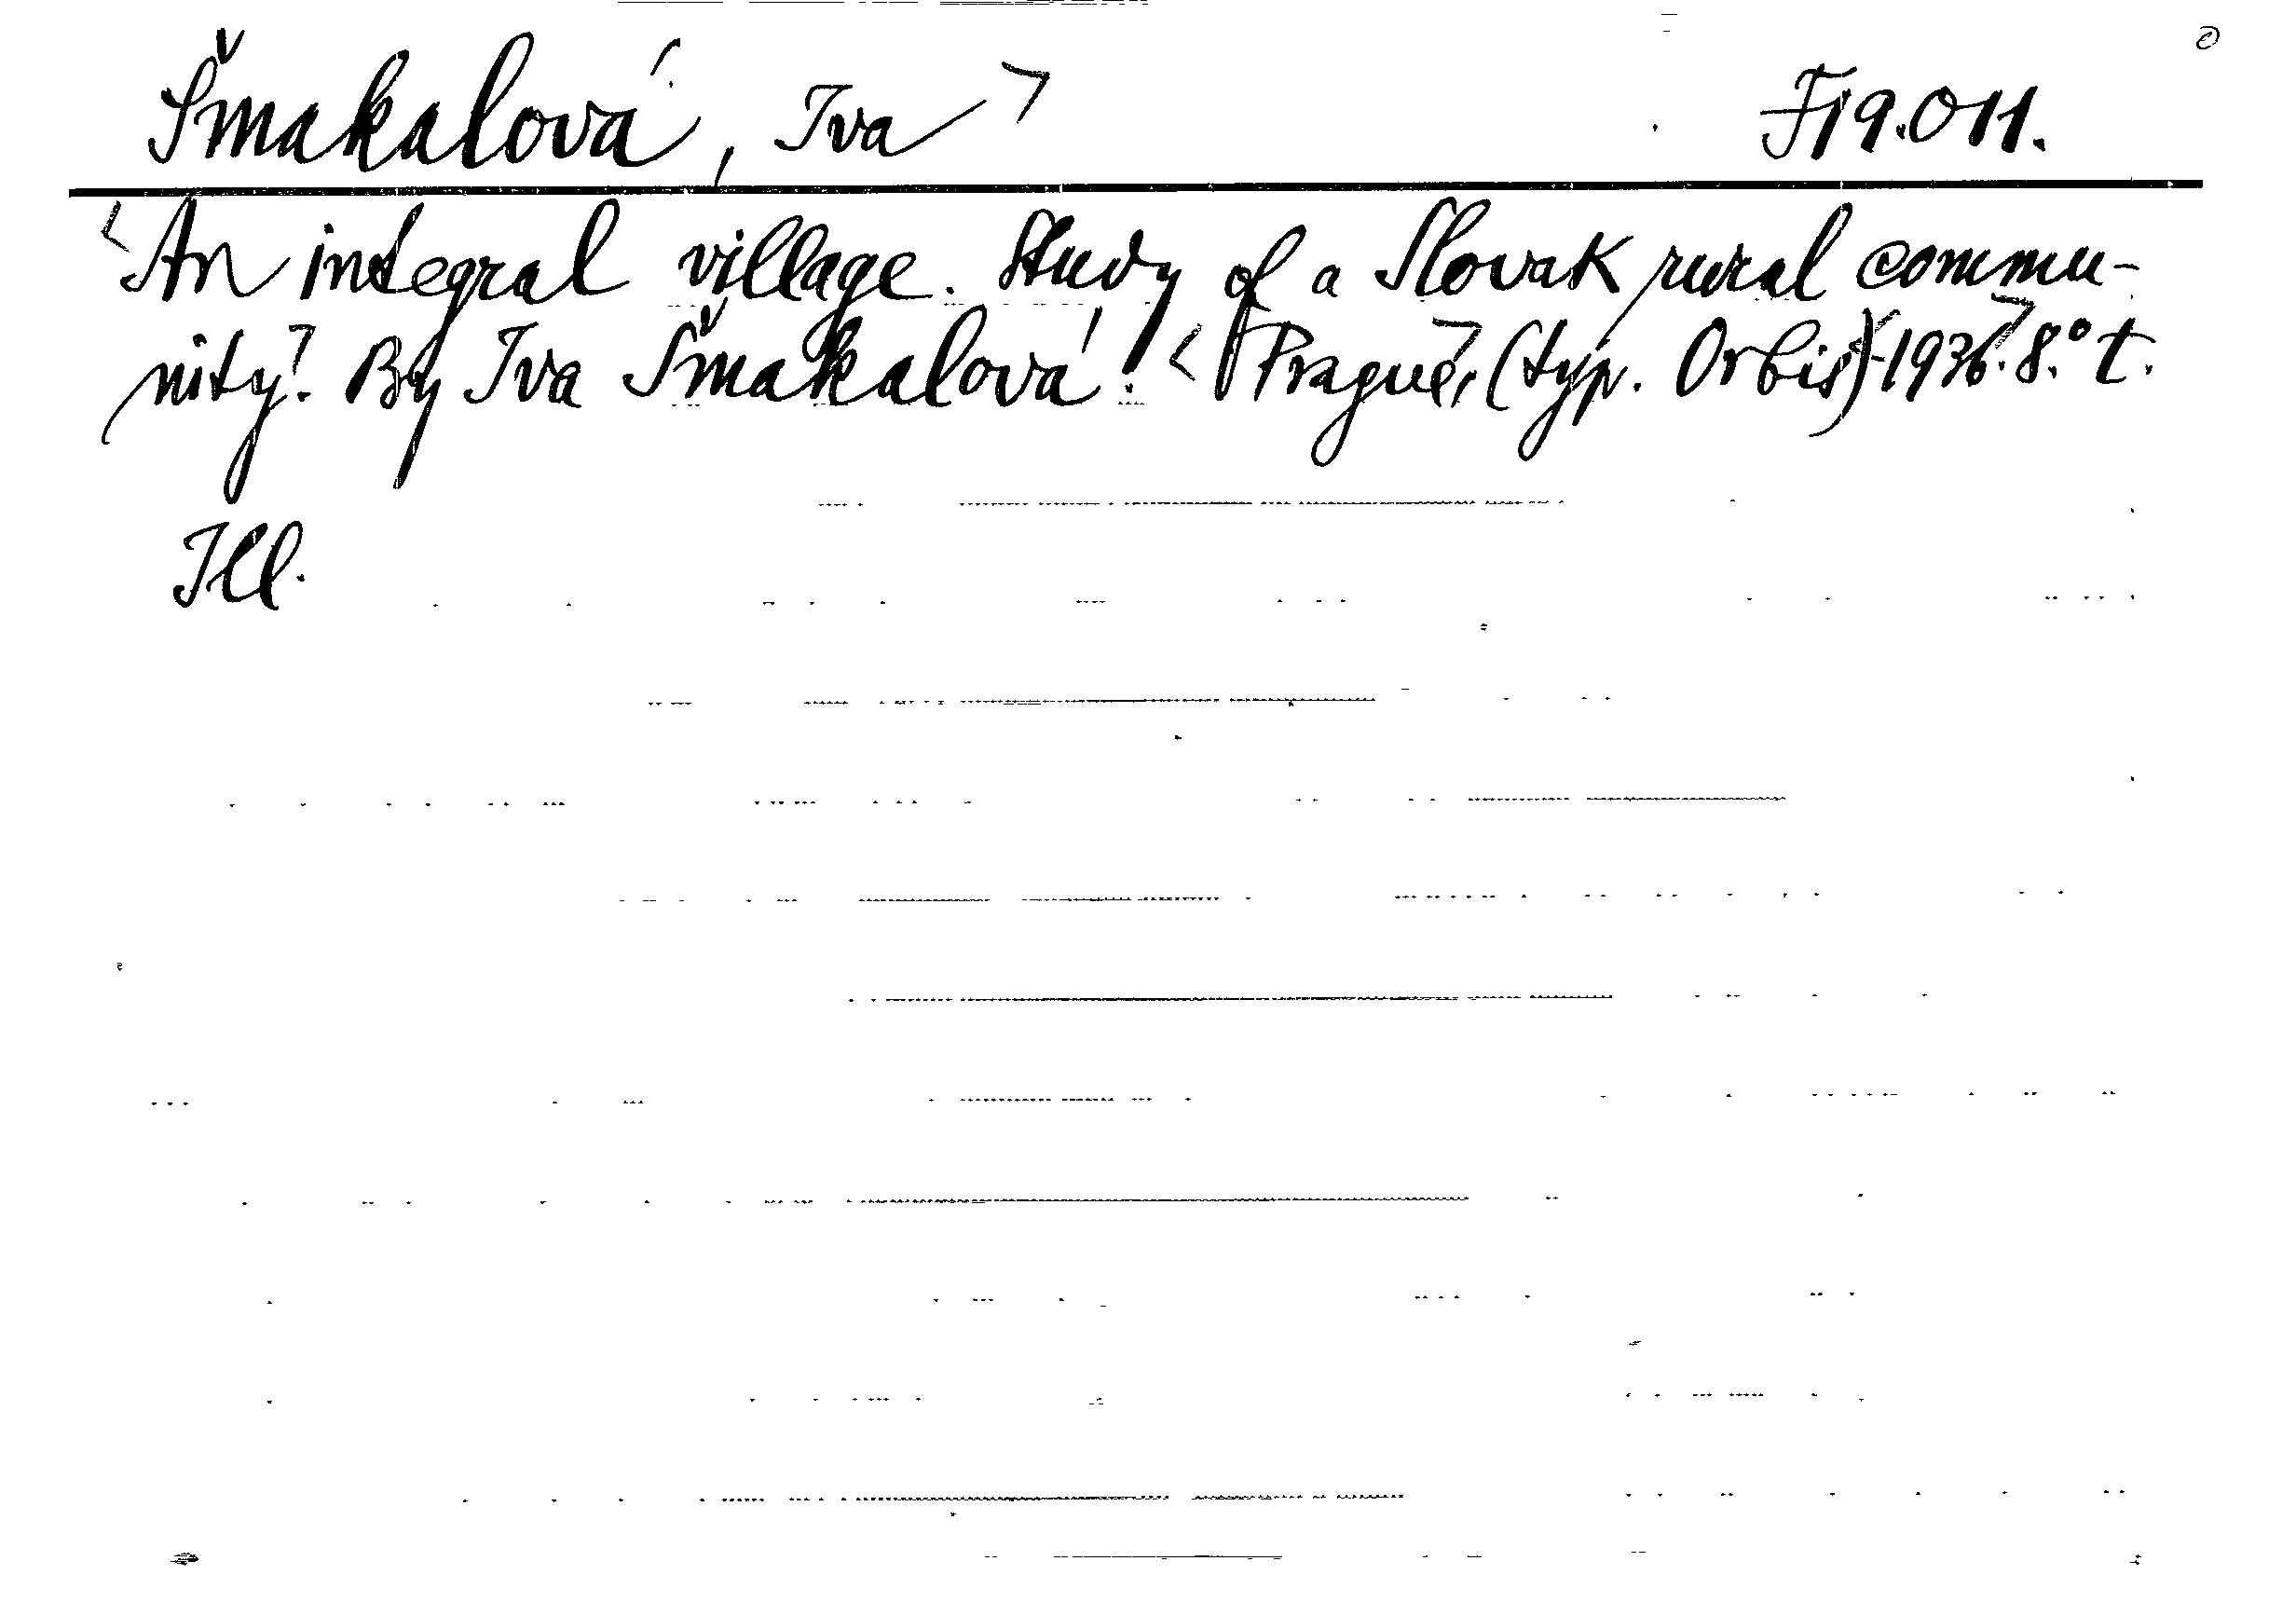 Šmakalová, Iva> F19.011.
<An integral village. Study of a Slovak rural commu-
nity>. By Iva Šmakalová. <Prague>, (typ. Orbis) <1936>. 8.° t.
Ill.